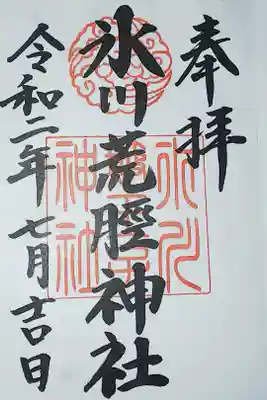 奉拝
氷川荒脛神社
令和二年七月吉日